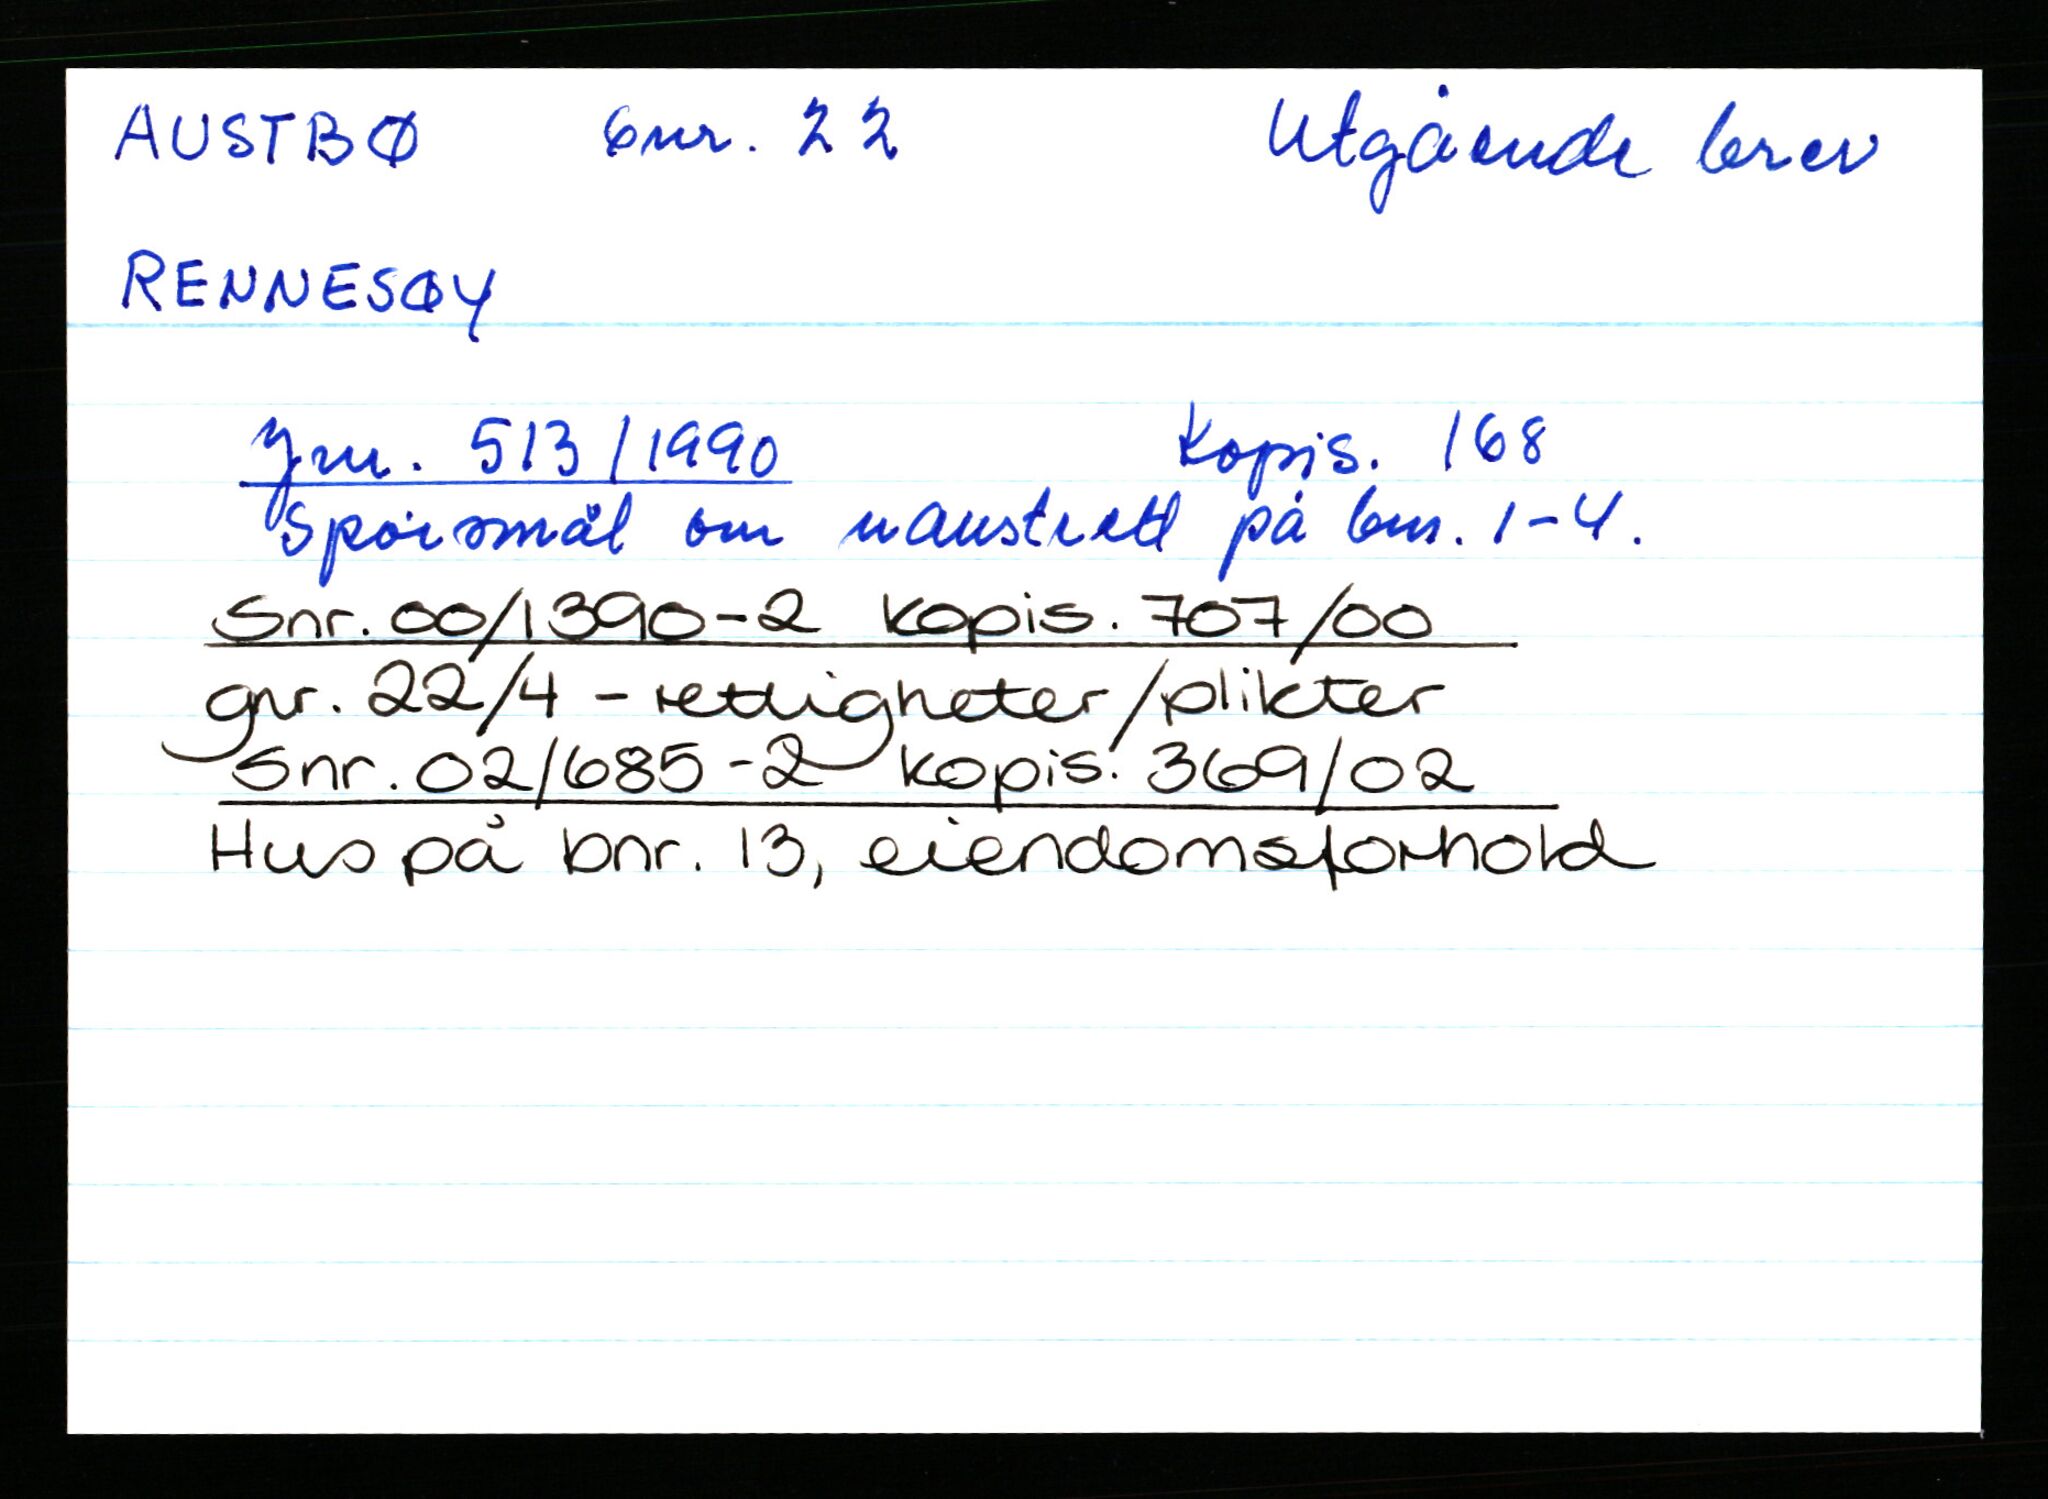 AUSTBØ Gnr. 22 Utgående brev
RENNESØY
Jnr. 513/1990 Kopis. 168
Spørsmål om naustrett på bnr. 1-4.
Snr. 00/1390-2 kopis. 707/00
gnr. 22/4 - rettigheter/plikter
Snr. 02/685-2 kopis. 369/02
Hus på bnr. 13, eiendomsforhold